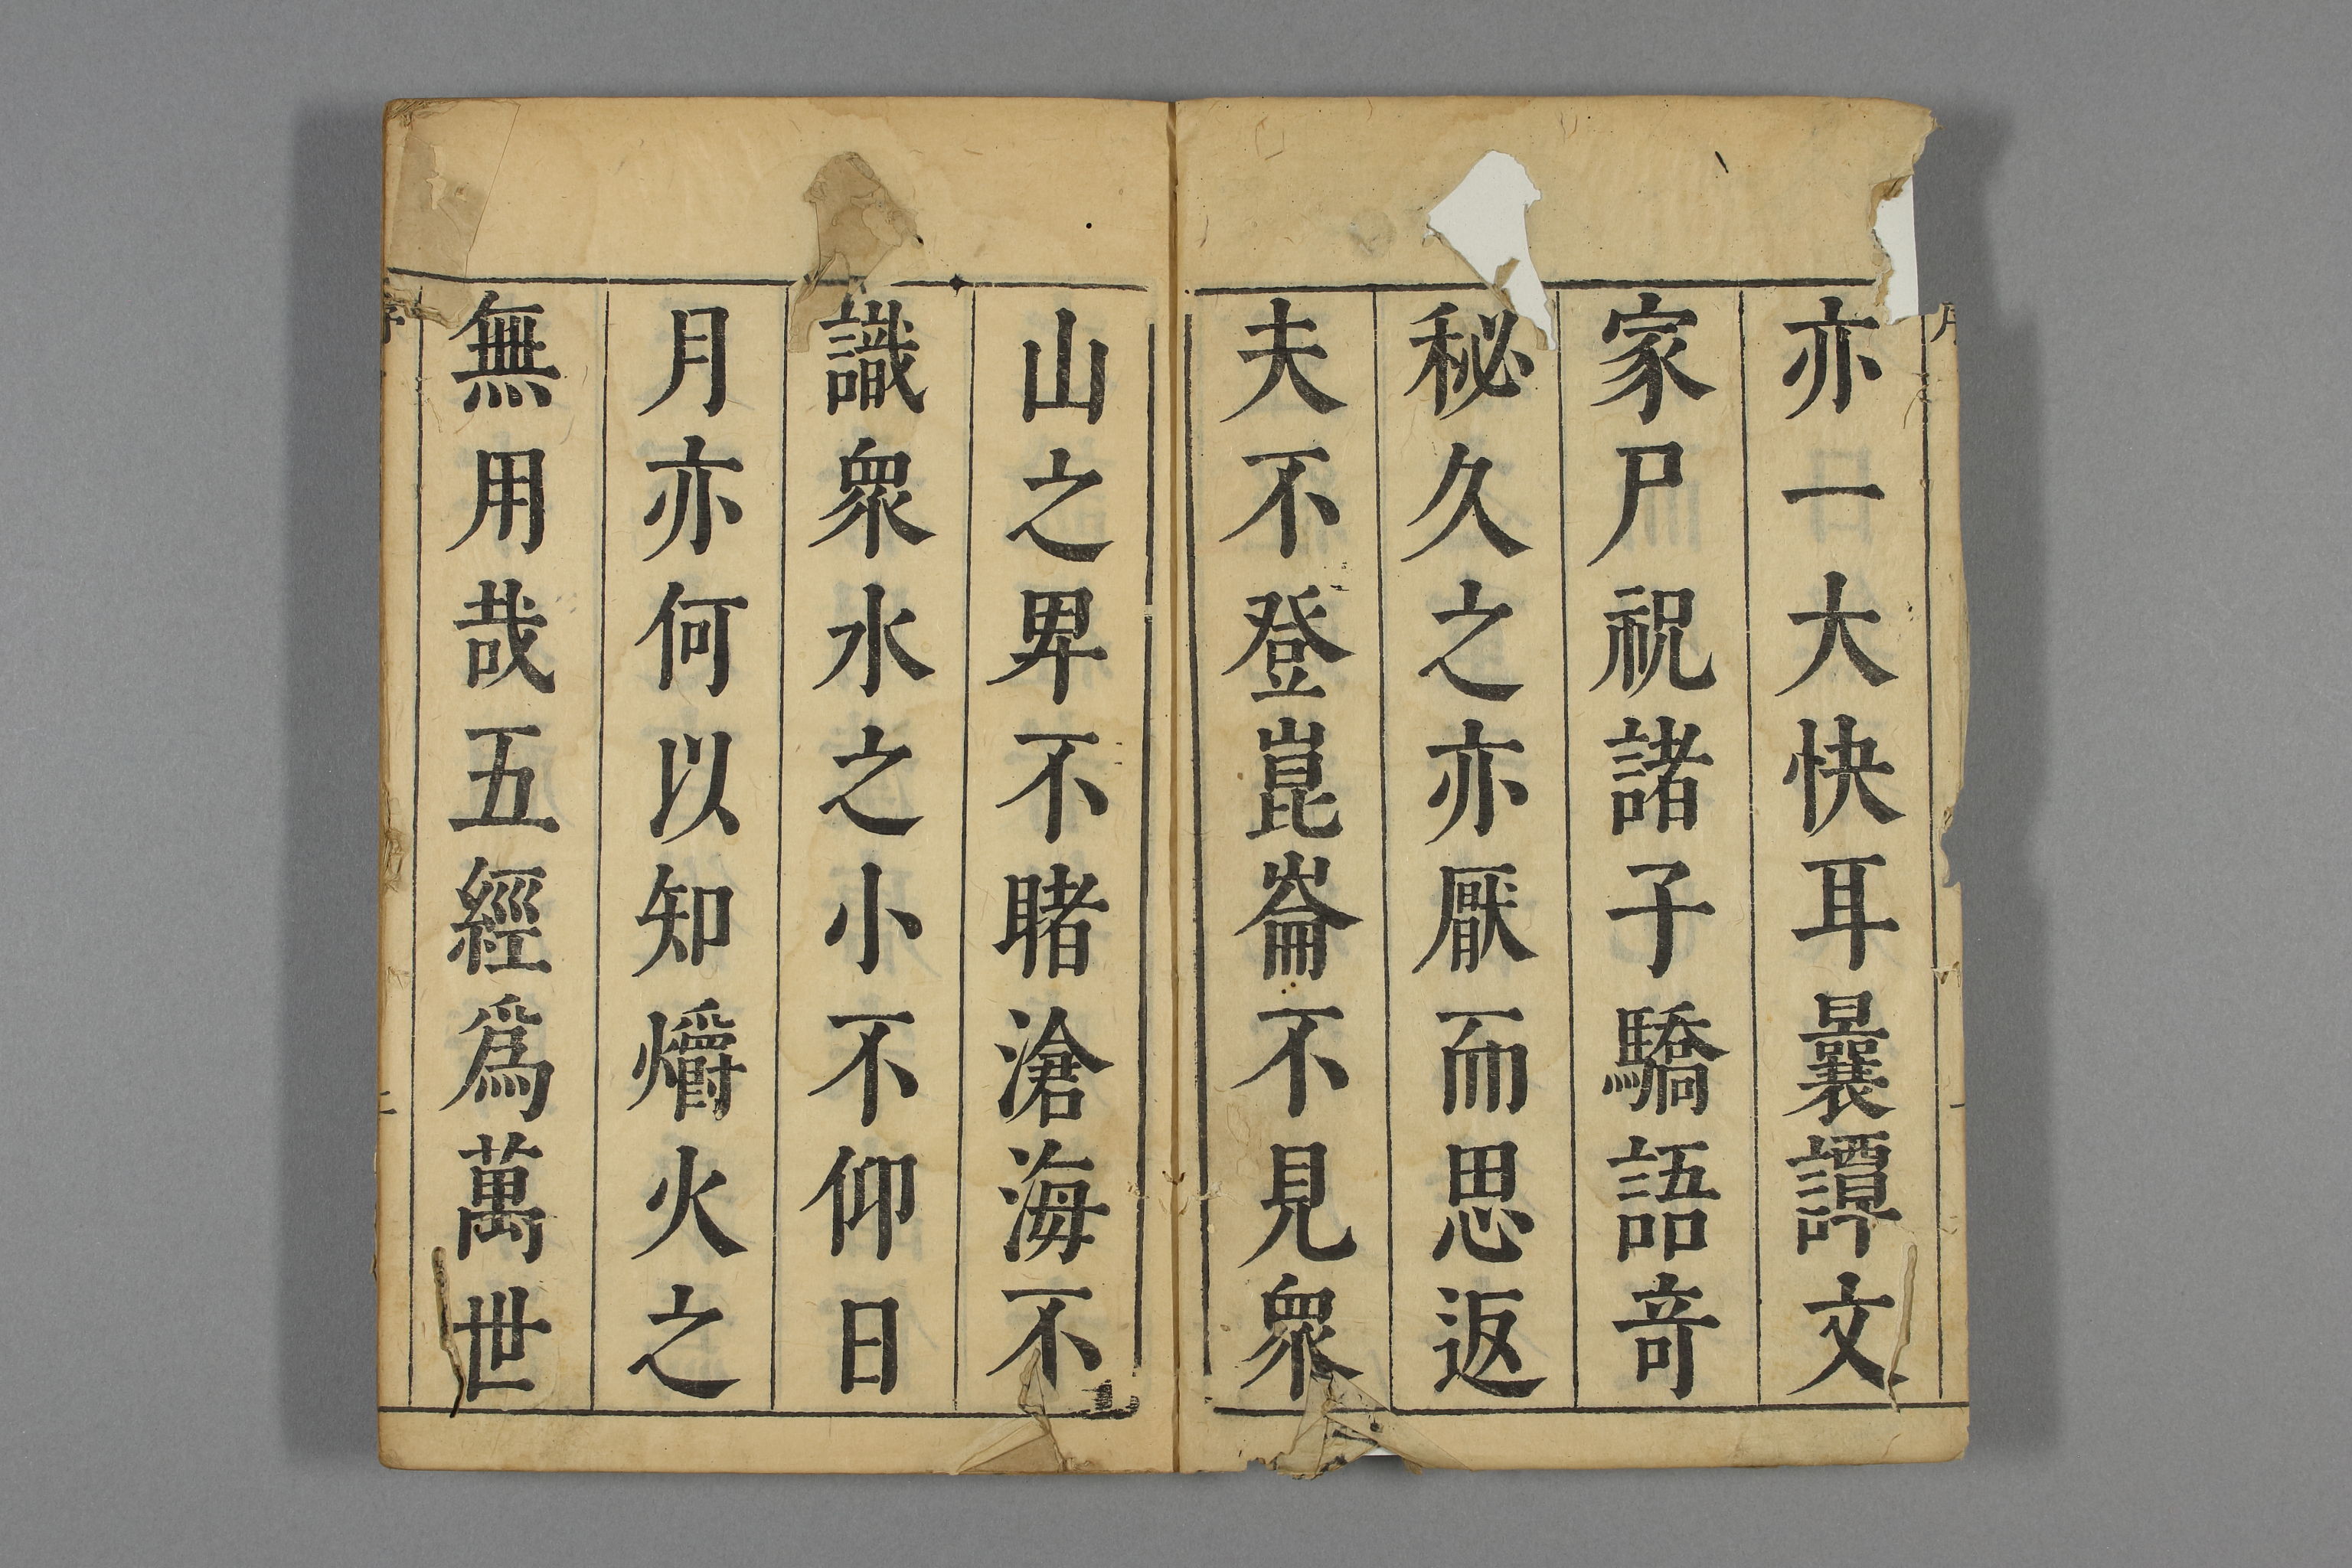 亦一大快耳曩譚文
家尸祝諸子驕語竒
秘久之亦厭而思返
夫不登崑崙不見衆
山之卑不睹滄海不
識衆水之小不仰日
月亦何以知爝火之
無用哉五經爲萬世